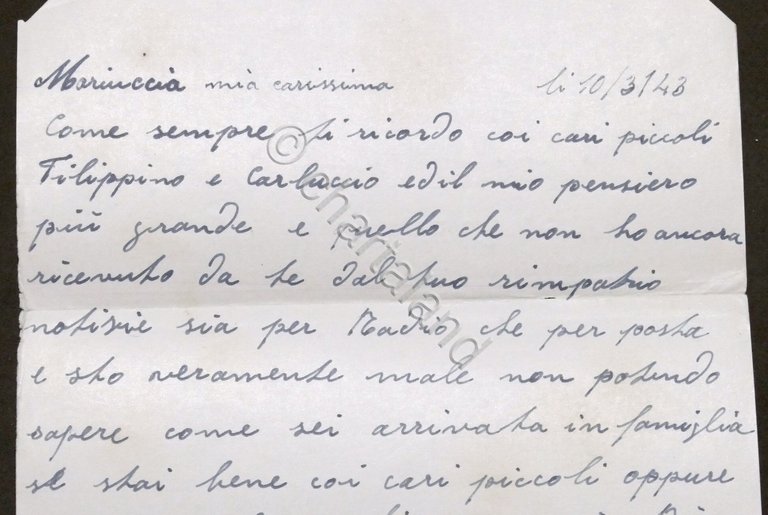 Mariuccia mia carissima li 10/3/43
Come sempre ti ricordo coi cari piccoli
Filippino e Carluccio ed il mio pensiero
più grande e quello che non ho ancora
ricevuto da te dal tuo rimpatrio
notizie sia per Radio che per posta
e sto veramente male non potendo
sapere come sei arrivata in famiglia
se stai bene coi cari piccoli oppure
© Chartaland